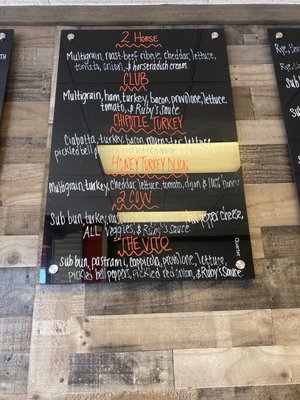 2 HORSE
Multigrain, roast-beef ribeye, cheddar, lettuce,
tomato, onion, & horseradish cream
CLUB
Multigrain, ham, turkey, bacon, provolone, lettuce,
tomato, & Ruby's Sauce
CHIPOTLE TURKEY
Ciabatta, turkey, bacon, muenster, lettuce,
pickled bell
HONEY TURKEY DIJON
Multigrain, turkey, cheddar, lettuce, tomato, dijon, & 100% honey
2 COW
Sub bun, turkey, roast pepper cheese,
ALL veggies, & Ruby's Sauce
THE VITO
Sub bun, pastrami, coppicola, provolone, lettuce,
pickled bell peppers, pickled red onion, & Ruby's Sauce
Quartet